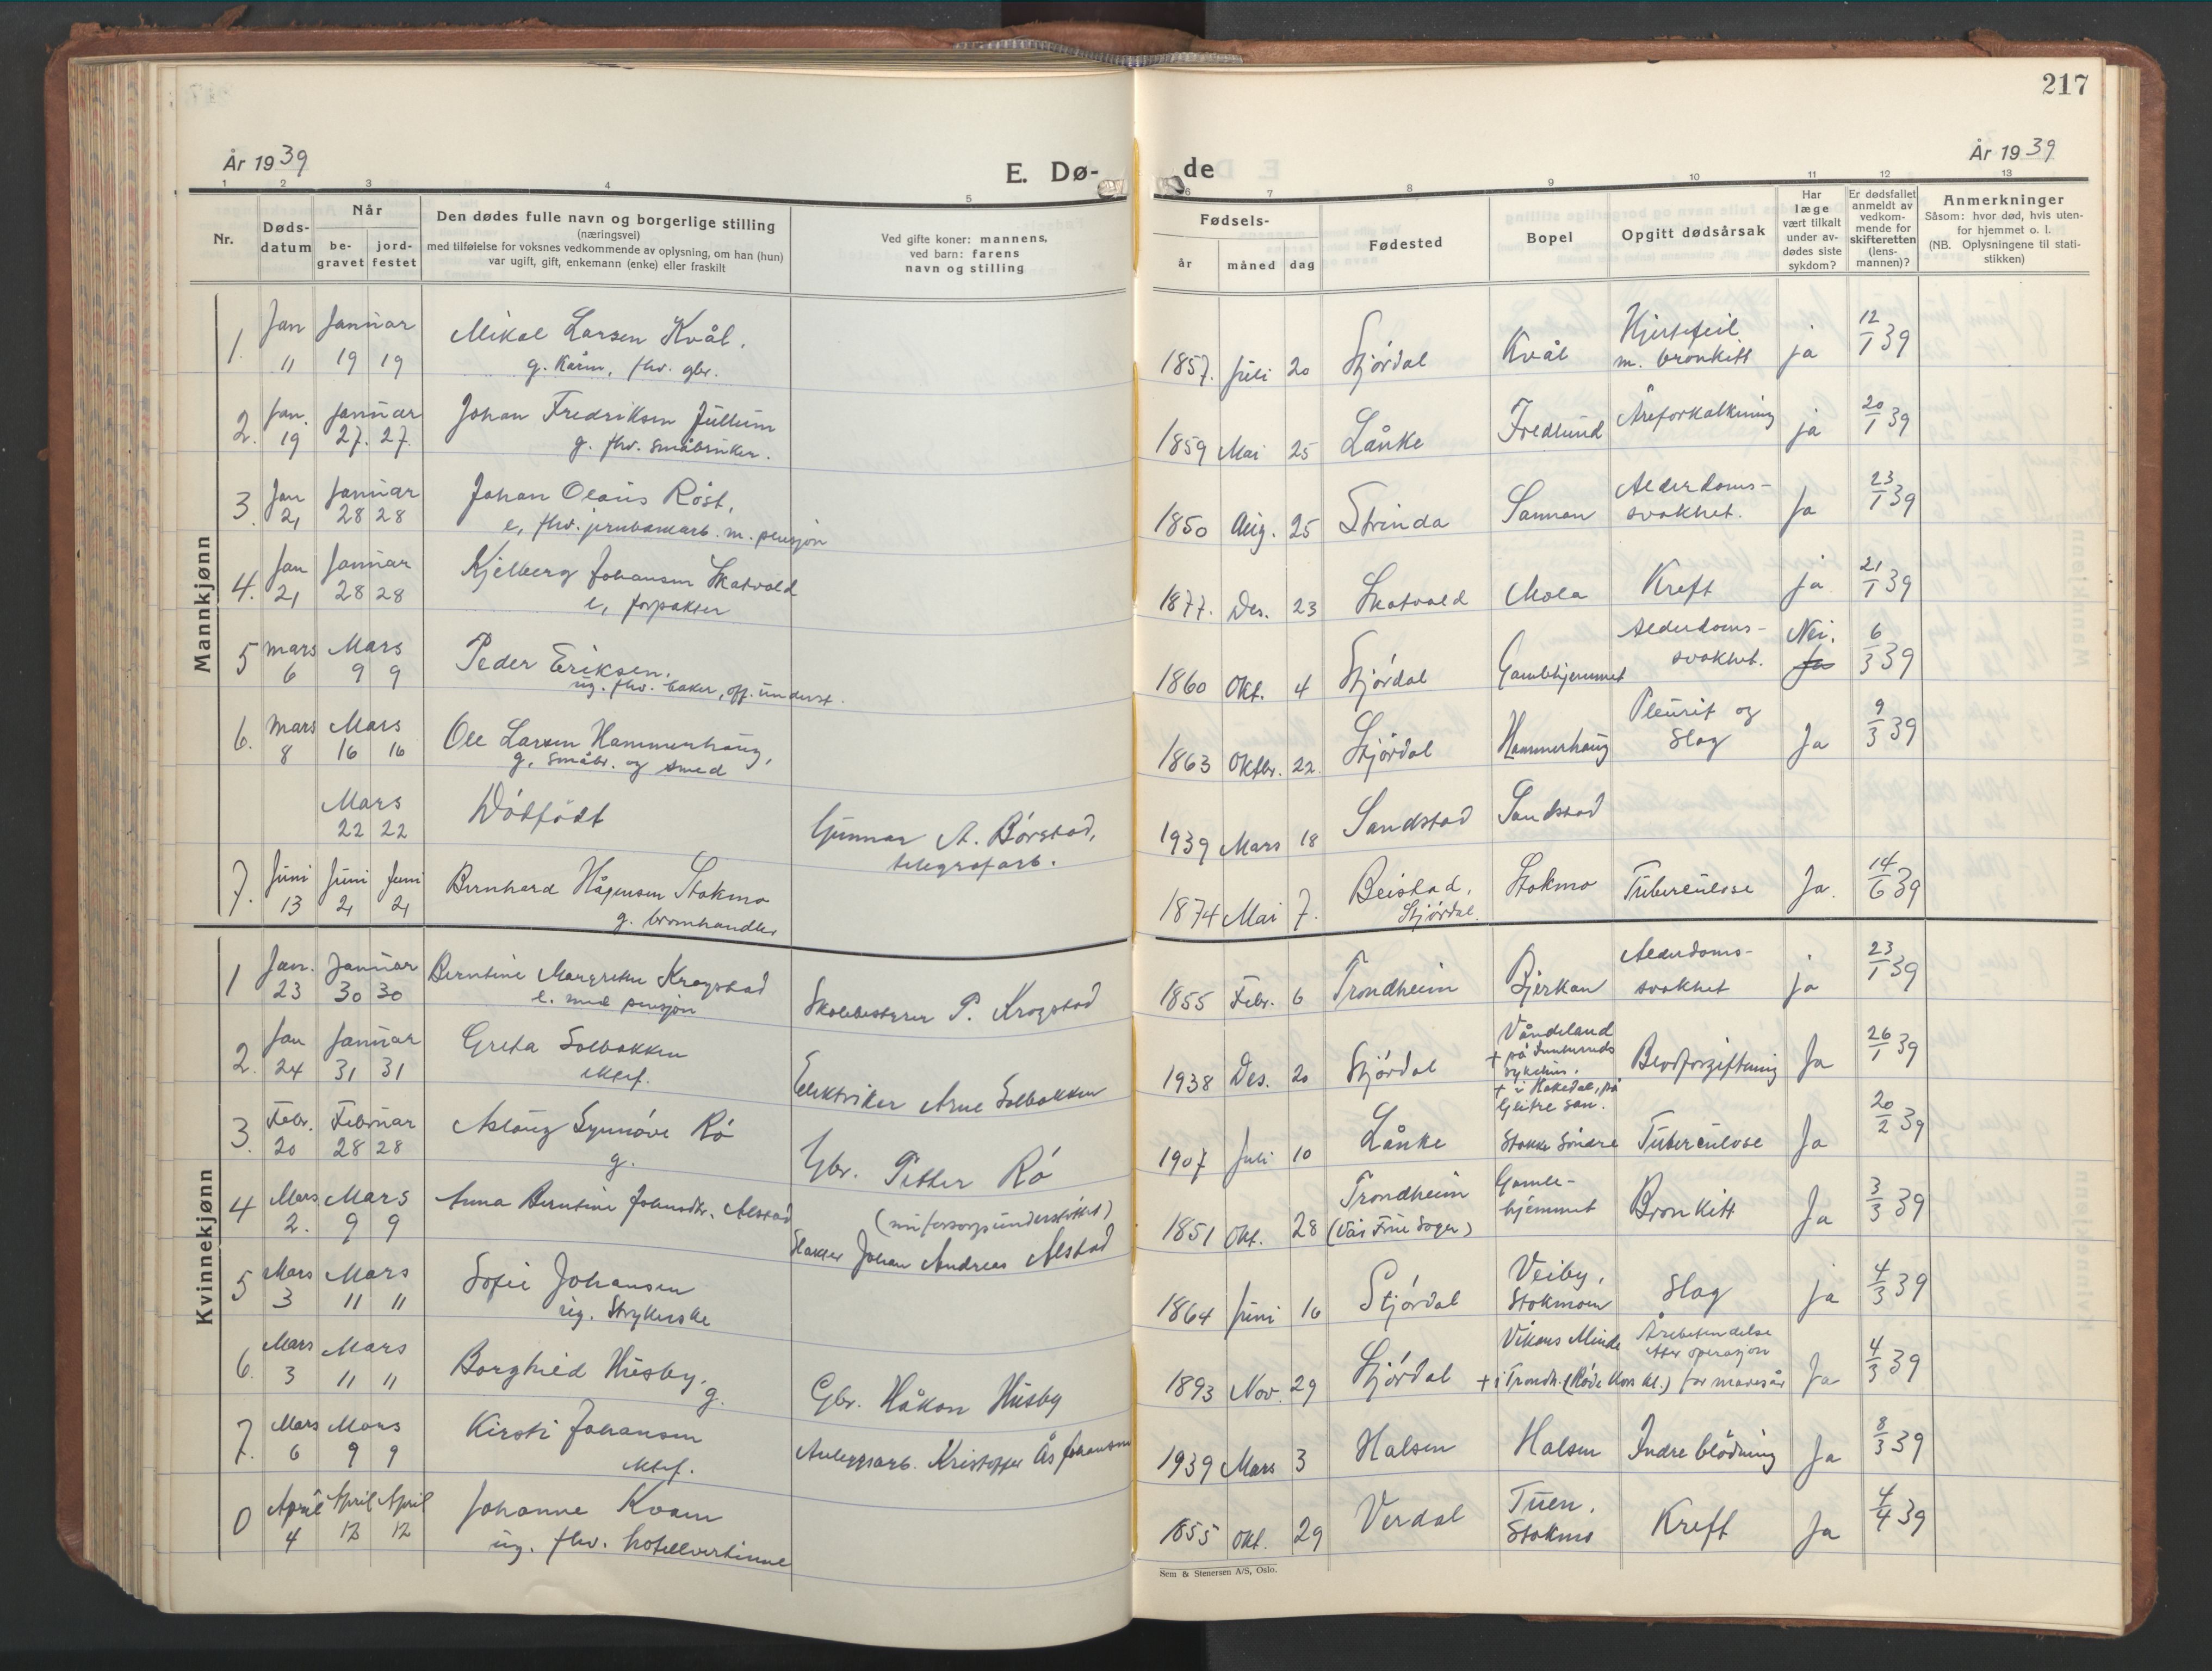 217
År 1939
E. Dø-
de
År 1939
1 2 3 4 5 6 7 8 9 10 11 12 13
Nr.
Døds-
datum
Når
be-
gravet
jord-
festet
Den dødes fulle navn og borgerlige stilling
(næringsvei)
med tilføielse for voksnes vedkommende av oplysning, om han (hun)
var ugift, gift, enkemann (enke) eller fraskilt
Ved gifte koner: mannens,
ved barn: farens
navn og stilling
Fødsels-
år måned dag
Fødested
Bopel
Opgitt dødsårsak
Har
læge
vært tilkalt
under av-
dødes siste
sykdom?
Er dødsfallet
anmeldt av
vedkom-
mende for
skifteretten
(lens-
mannen)?
Anmerkninger
Såsom: hvor død, hvis uten-
for hjemmet o. l.
(NB. Oplysningene til stati-
stikken)
Mannkjønn
1. Jan 11 Januar 19 19 Mikal Larsen Kvål.
g. Kårm, fhv. gbr.
1857. Juli 20 Stjórdal Kvål Hjertefeil
m. bronkitt ja 12/1 39
2. Jan. 19 Januar 27. 27. Johan Fredriksen Jullum
g. fhv. småbruker.
1859 Mai 25 Lånke Fredlund Åreforkalkning ja 20/1 39
3. Jan 21 Januar 28 28 Johan Olaus Röst,
e, fhv. jernbanearb. m. pensjon
1850 Aug. 25 Strinda Sannan Alderdoms-
svakhet. Ja 23/1 39
4. Jan 21 Januar 28 28 Kjelberg Johansen Skatvold
e, forpakter
1877. Des. 23 Skatvold Mola Kreft ja 21/1 39
5 Mars 6 Mars 9 9 Peder Eriksen,
ug. fhv. baker, off. underst.
1860 Okt. 4 Stjórdal Gamlehjemmet Alderdoms-
svakhet. Nei. Ja 6/3 39
6. Mars 8 Mars 16 16 Ole Larsen Hammerhaug,
g, småbr. og smed
1863 Oktbr. 22. Stjórdal Hammerhaug Pleurit og
Slag Ja 9/3 39
Mars 22 22 Dódfódt Gunnar A. Börstad,
telegrafarb.
1939 Mars 18 Sandstad Sandstad
7. Juni 13 Juni 21 Juni 21 Bernhard Hågensen Stokmo
g. brönhandler
1874 Mai 7. Beistad,
Stjórdal. Stokmo Tuberculose Ja. 14/6 39
Kvinnekjønn
1 Jan. 23 Januar 30 30 Berntine Margrethe Krogstad
e. med pensjon
Skolebestyrer P. Krogstad
1855 Febr. 6 Trondheim Bjerkan Alderdoms-
svakhet ja 23/1 39
2. Jan 24 Januar 31 31 Greta Solbakken
Elektriker Arne Solbakken
1938 Des. 20 Stjórdal Våndeland
+ på Innherreds
sykehus. Blodforgiftning Ja 26/1 39
3. Febr. 20 Februar 28 28 Aslaug Synnöve Rö
g.
Gbr. Petter Rö
1907 Juli 10 Lånke + i Hakedal, på
Glitre san.
Stokke Söndre Tuberculose Ja 20/2 39
4 Mars 2. Mars 9 9 Anna Berntine Johnsdtr. Alstad
Slakter Johan Andreas Alstad
1851 Okt. 28 Trondheim
(Vår Frue Sogn) Gamle-
hjemmet Bronkitt Ja 3/3 39
5 Mars 3 Mars 11 11 Sofie Johansen
ug. Strykerske
1864 Juni 16 Stjórdal Veiby,
Stokmoen Slag ja 4/3 39
6. Mars 3 Mars 11 11 Borghild Husby.
g.
Gbr. Håkon Husby
1893 Nov. 29 Stjórdal Vikans Minde
+ i Trondh. (Röde Kors kl.) Årebetendelse
etter operasjon
for mavesår Ja 4/3 39
7. Mars 6 Mars 9 9 Kirsti Johansen
Anleggsarb. Kristoffer Ås Johansen
1939 Mars 3 Halsen Halsen Indre blödning Ja 8/3 39
0 April 4 April 12 April 12 Johanne Kvam
ug. fhv. hotellvertinne
1855 Okt. 29 Verdal Tuen,
Stokmo Kreft Ja 4/4 39
Sem & Stenersen A/S, Oslo.